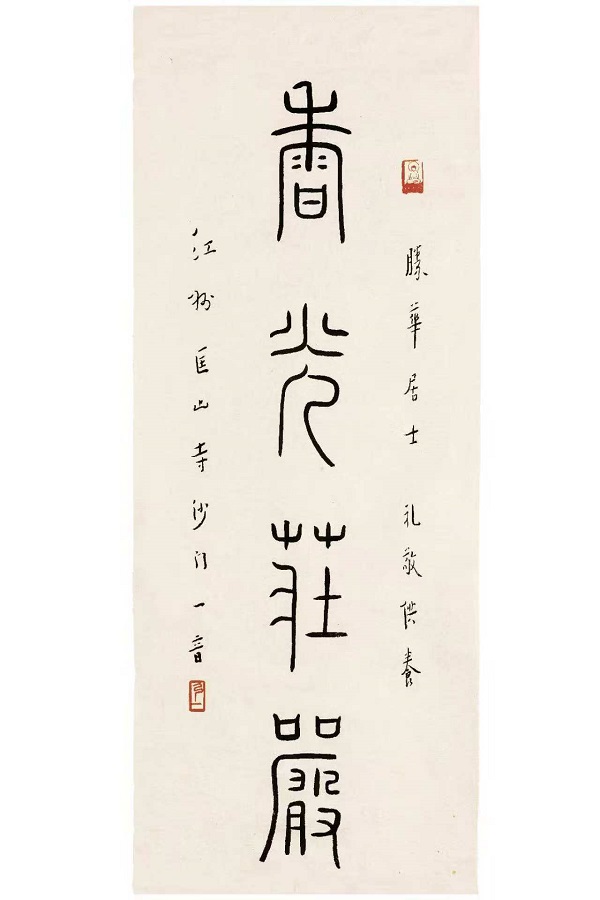 勝華居士 礼敬供養
香光莊嚴
江州匡山寺沙门一音